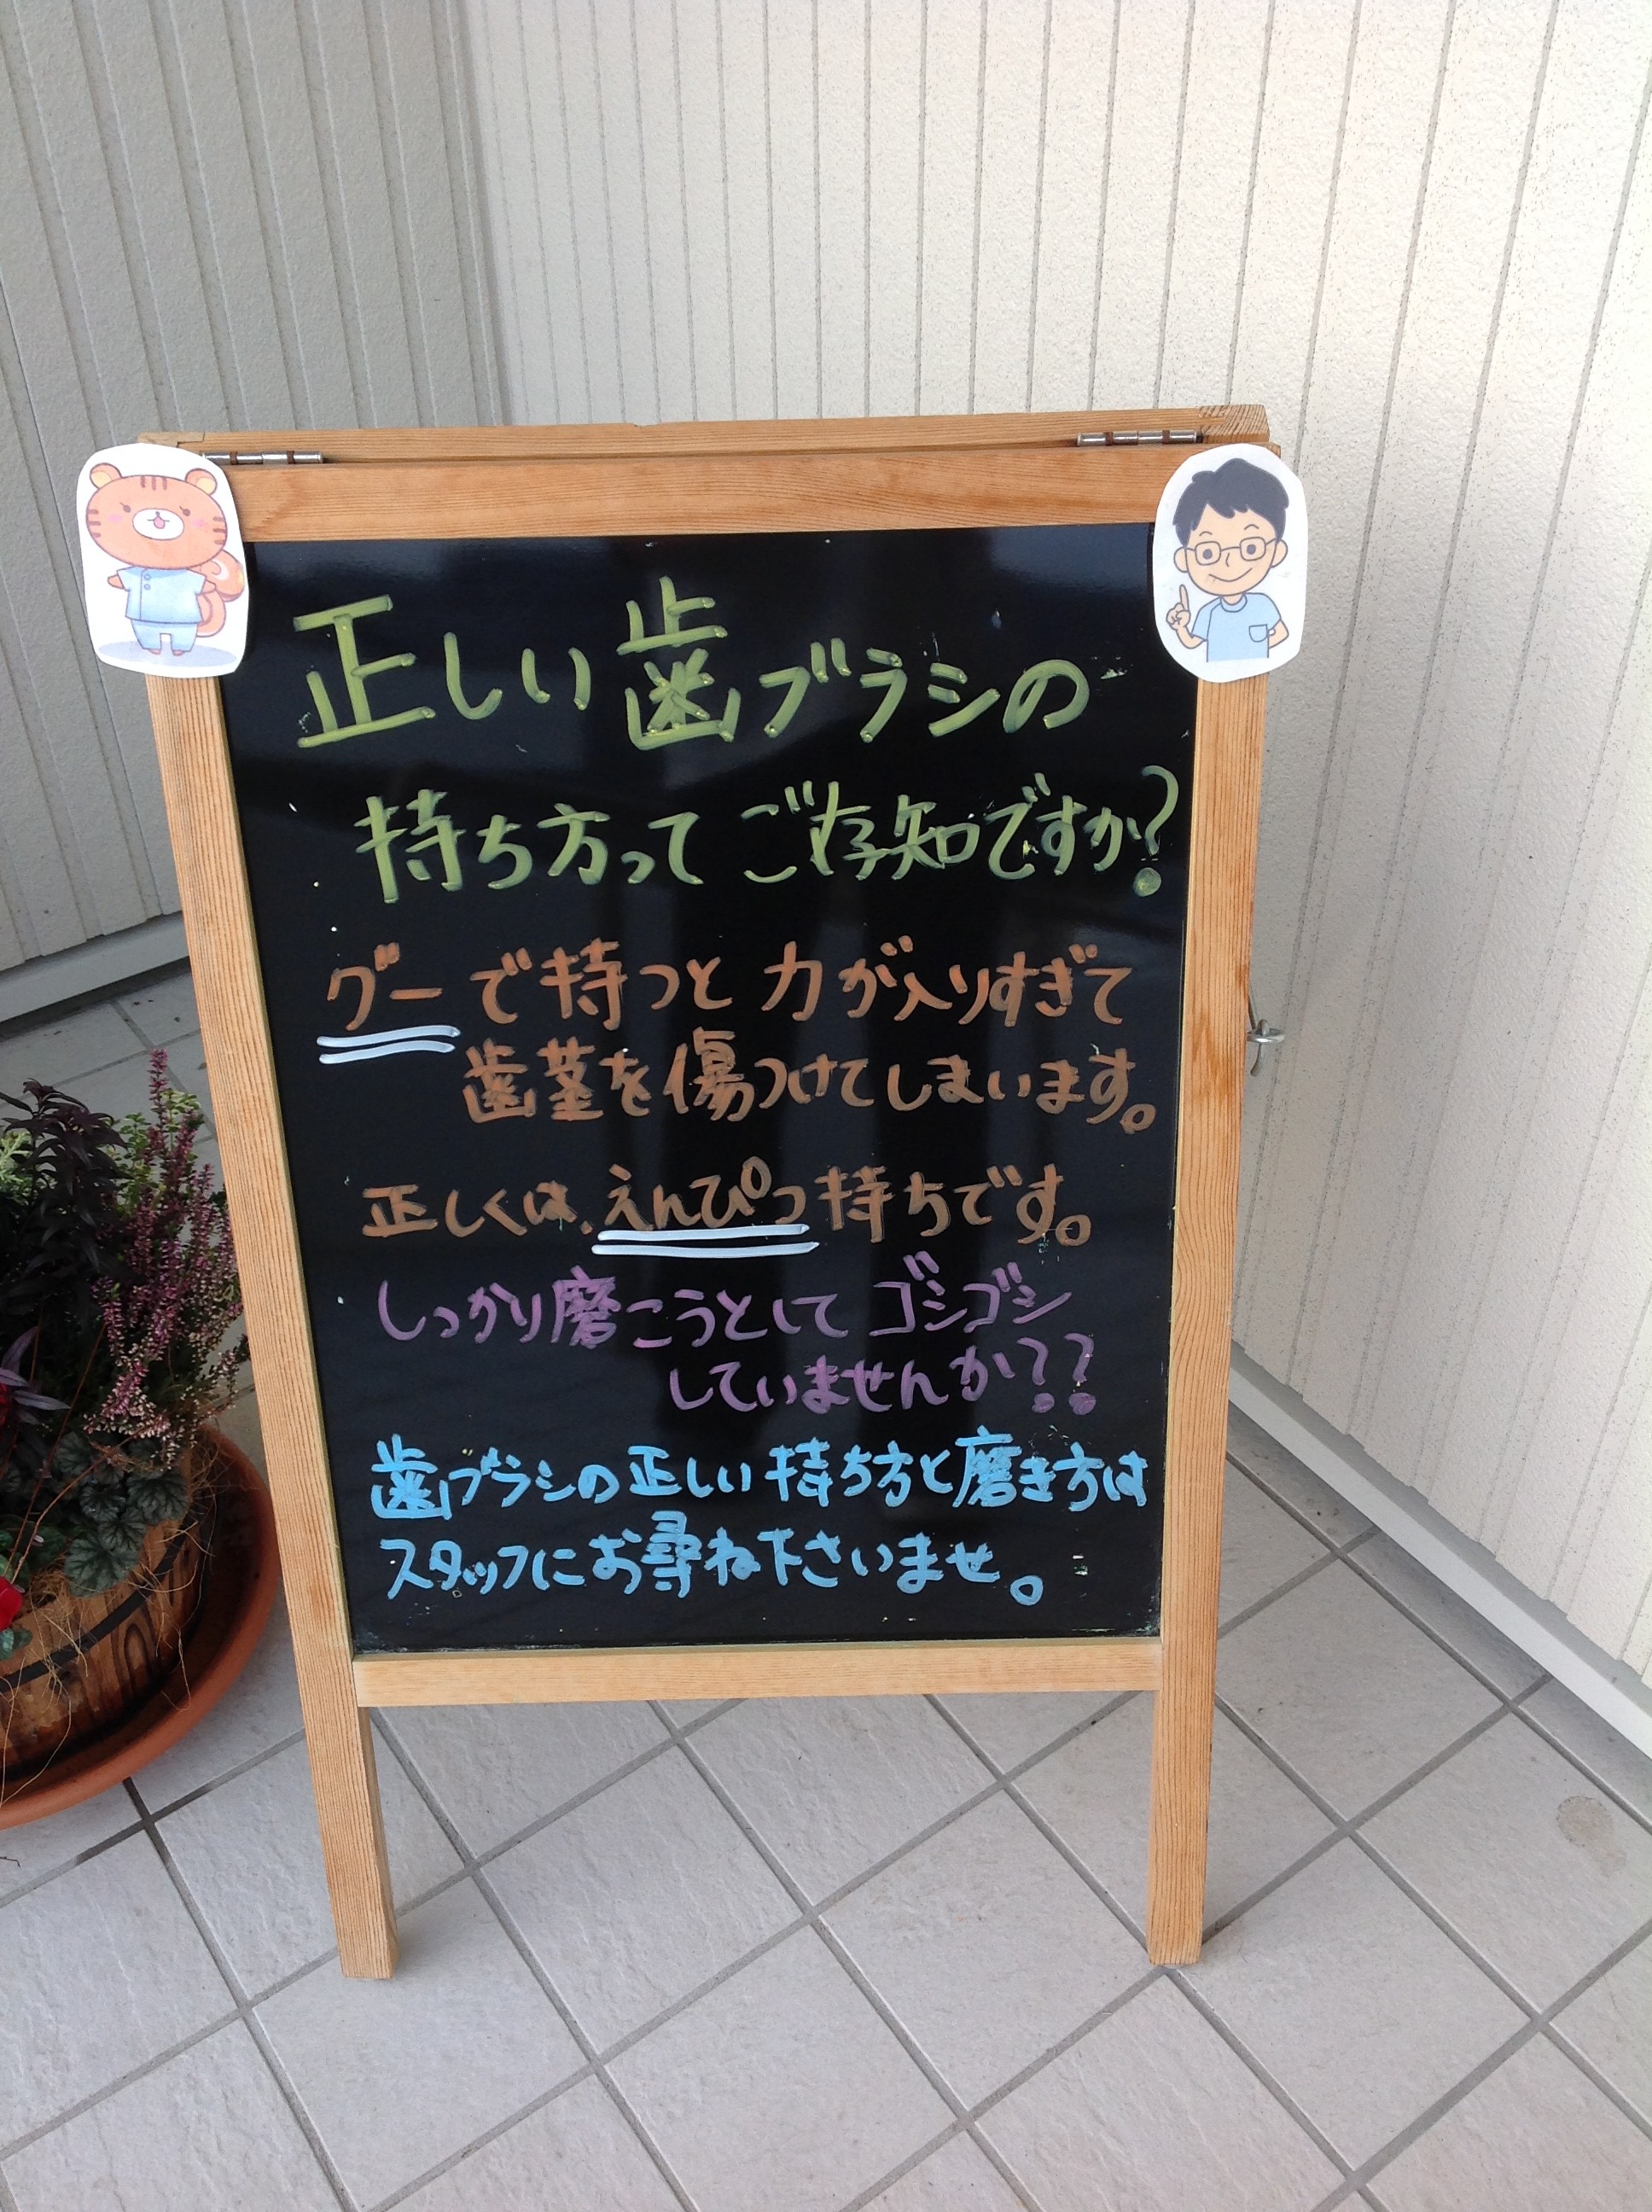 正しい歯ブラシの
持ち方ってご存知ですか?
グーで持つと力が入りすぎて
歯茎を傷つけてしまいます。
正しくは、えんぴつ持ちです。
しっかり磨こうとしてゴシゴシ
していませんか??
歯ブラシの正しい持ち方と磨き方は
スタッフにお尋ね下さいませ。